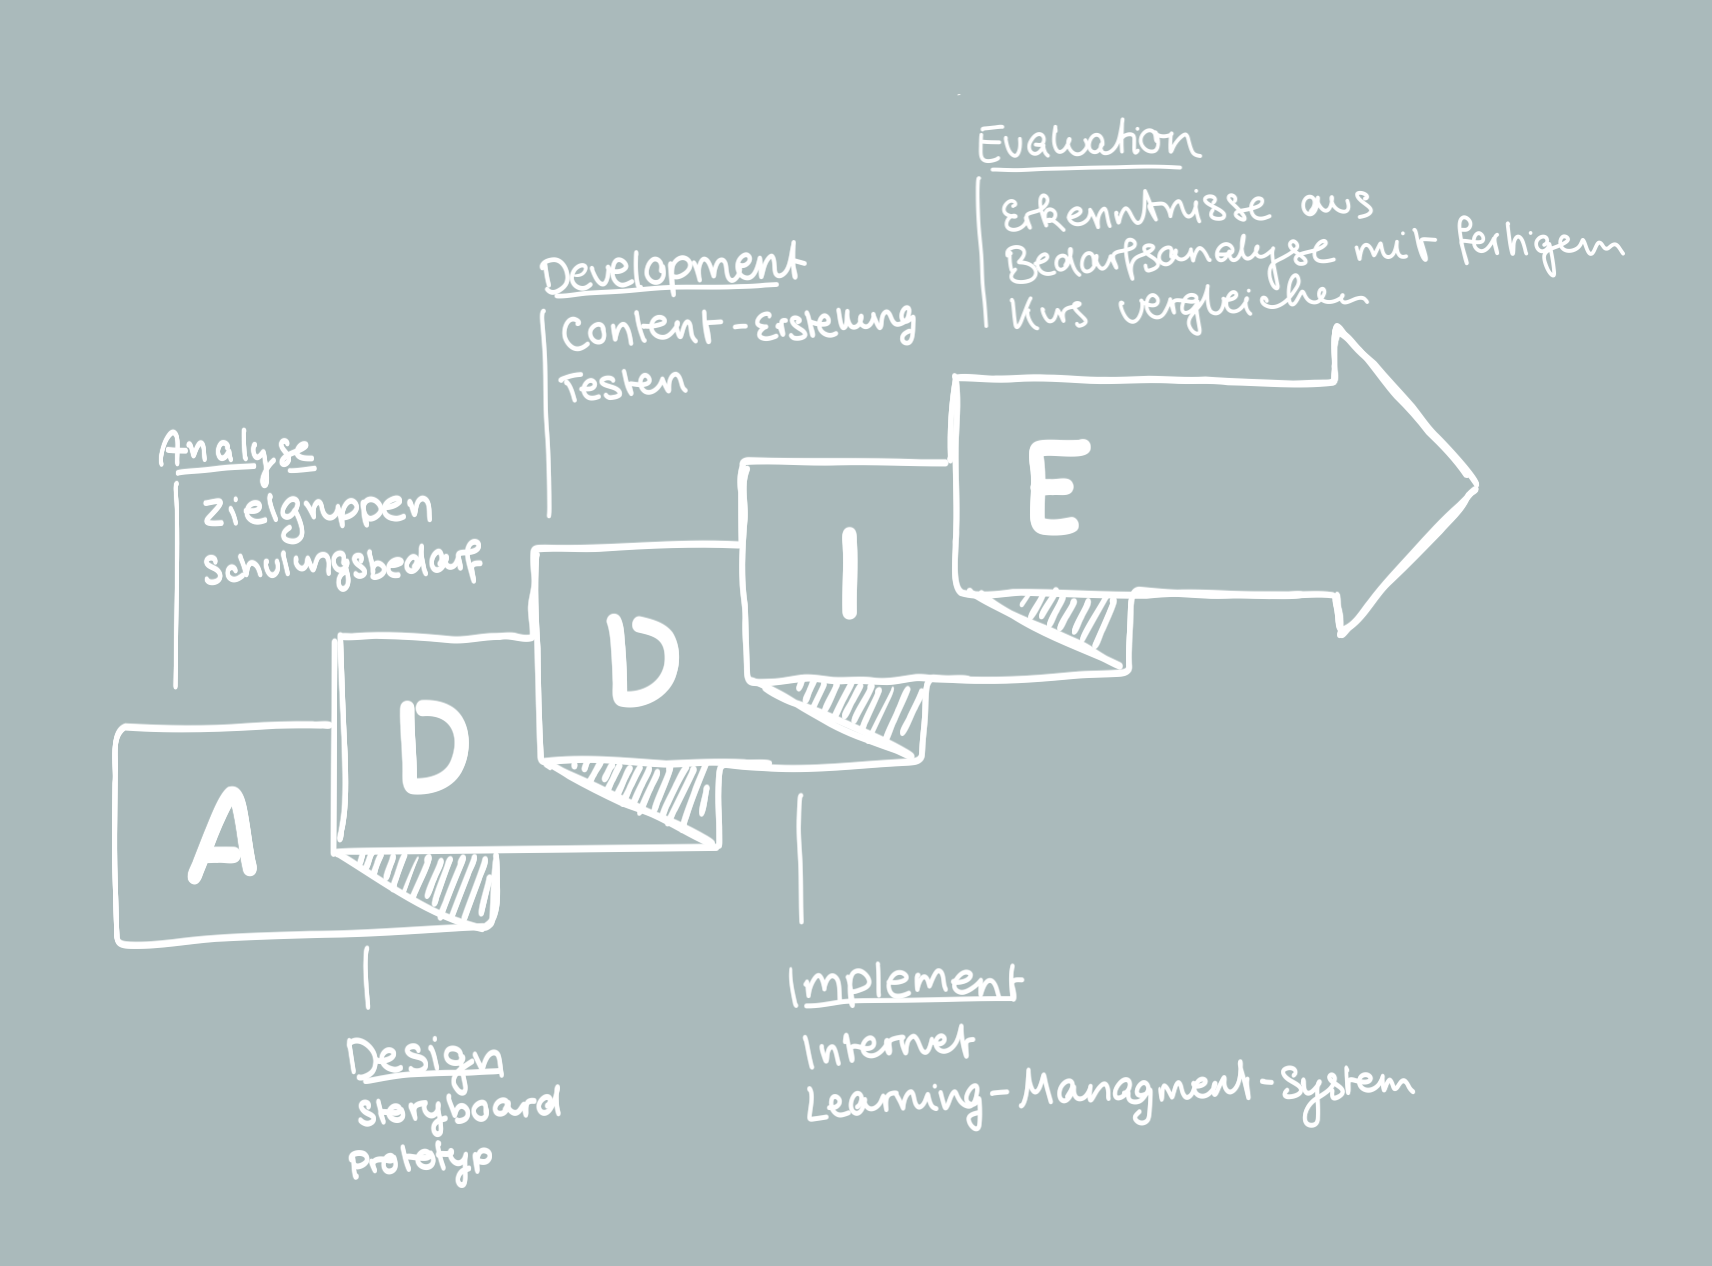 Analyse
Zielgruppen
Schulungsbedarf
Design
Storyboard
Prototyp
Development
Content-Erstellung
Testen
Implement
Internet
Learning-Managment-System
Evaluation
Erkenntnisse aus
Bedarfsanalyse mit fertigem
Kurs vergleichen
A
D
D
I
E